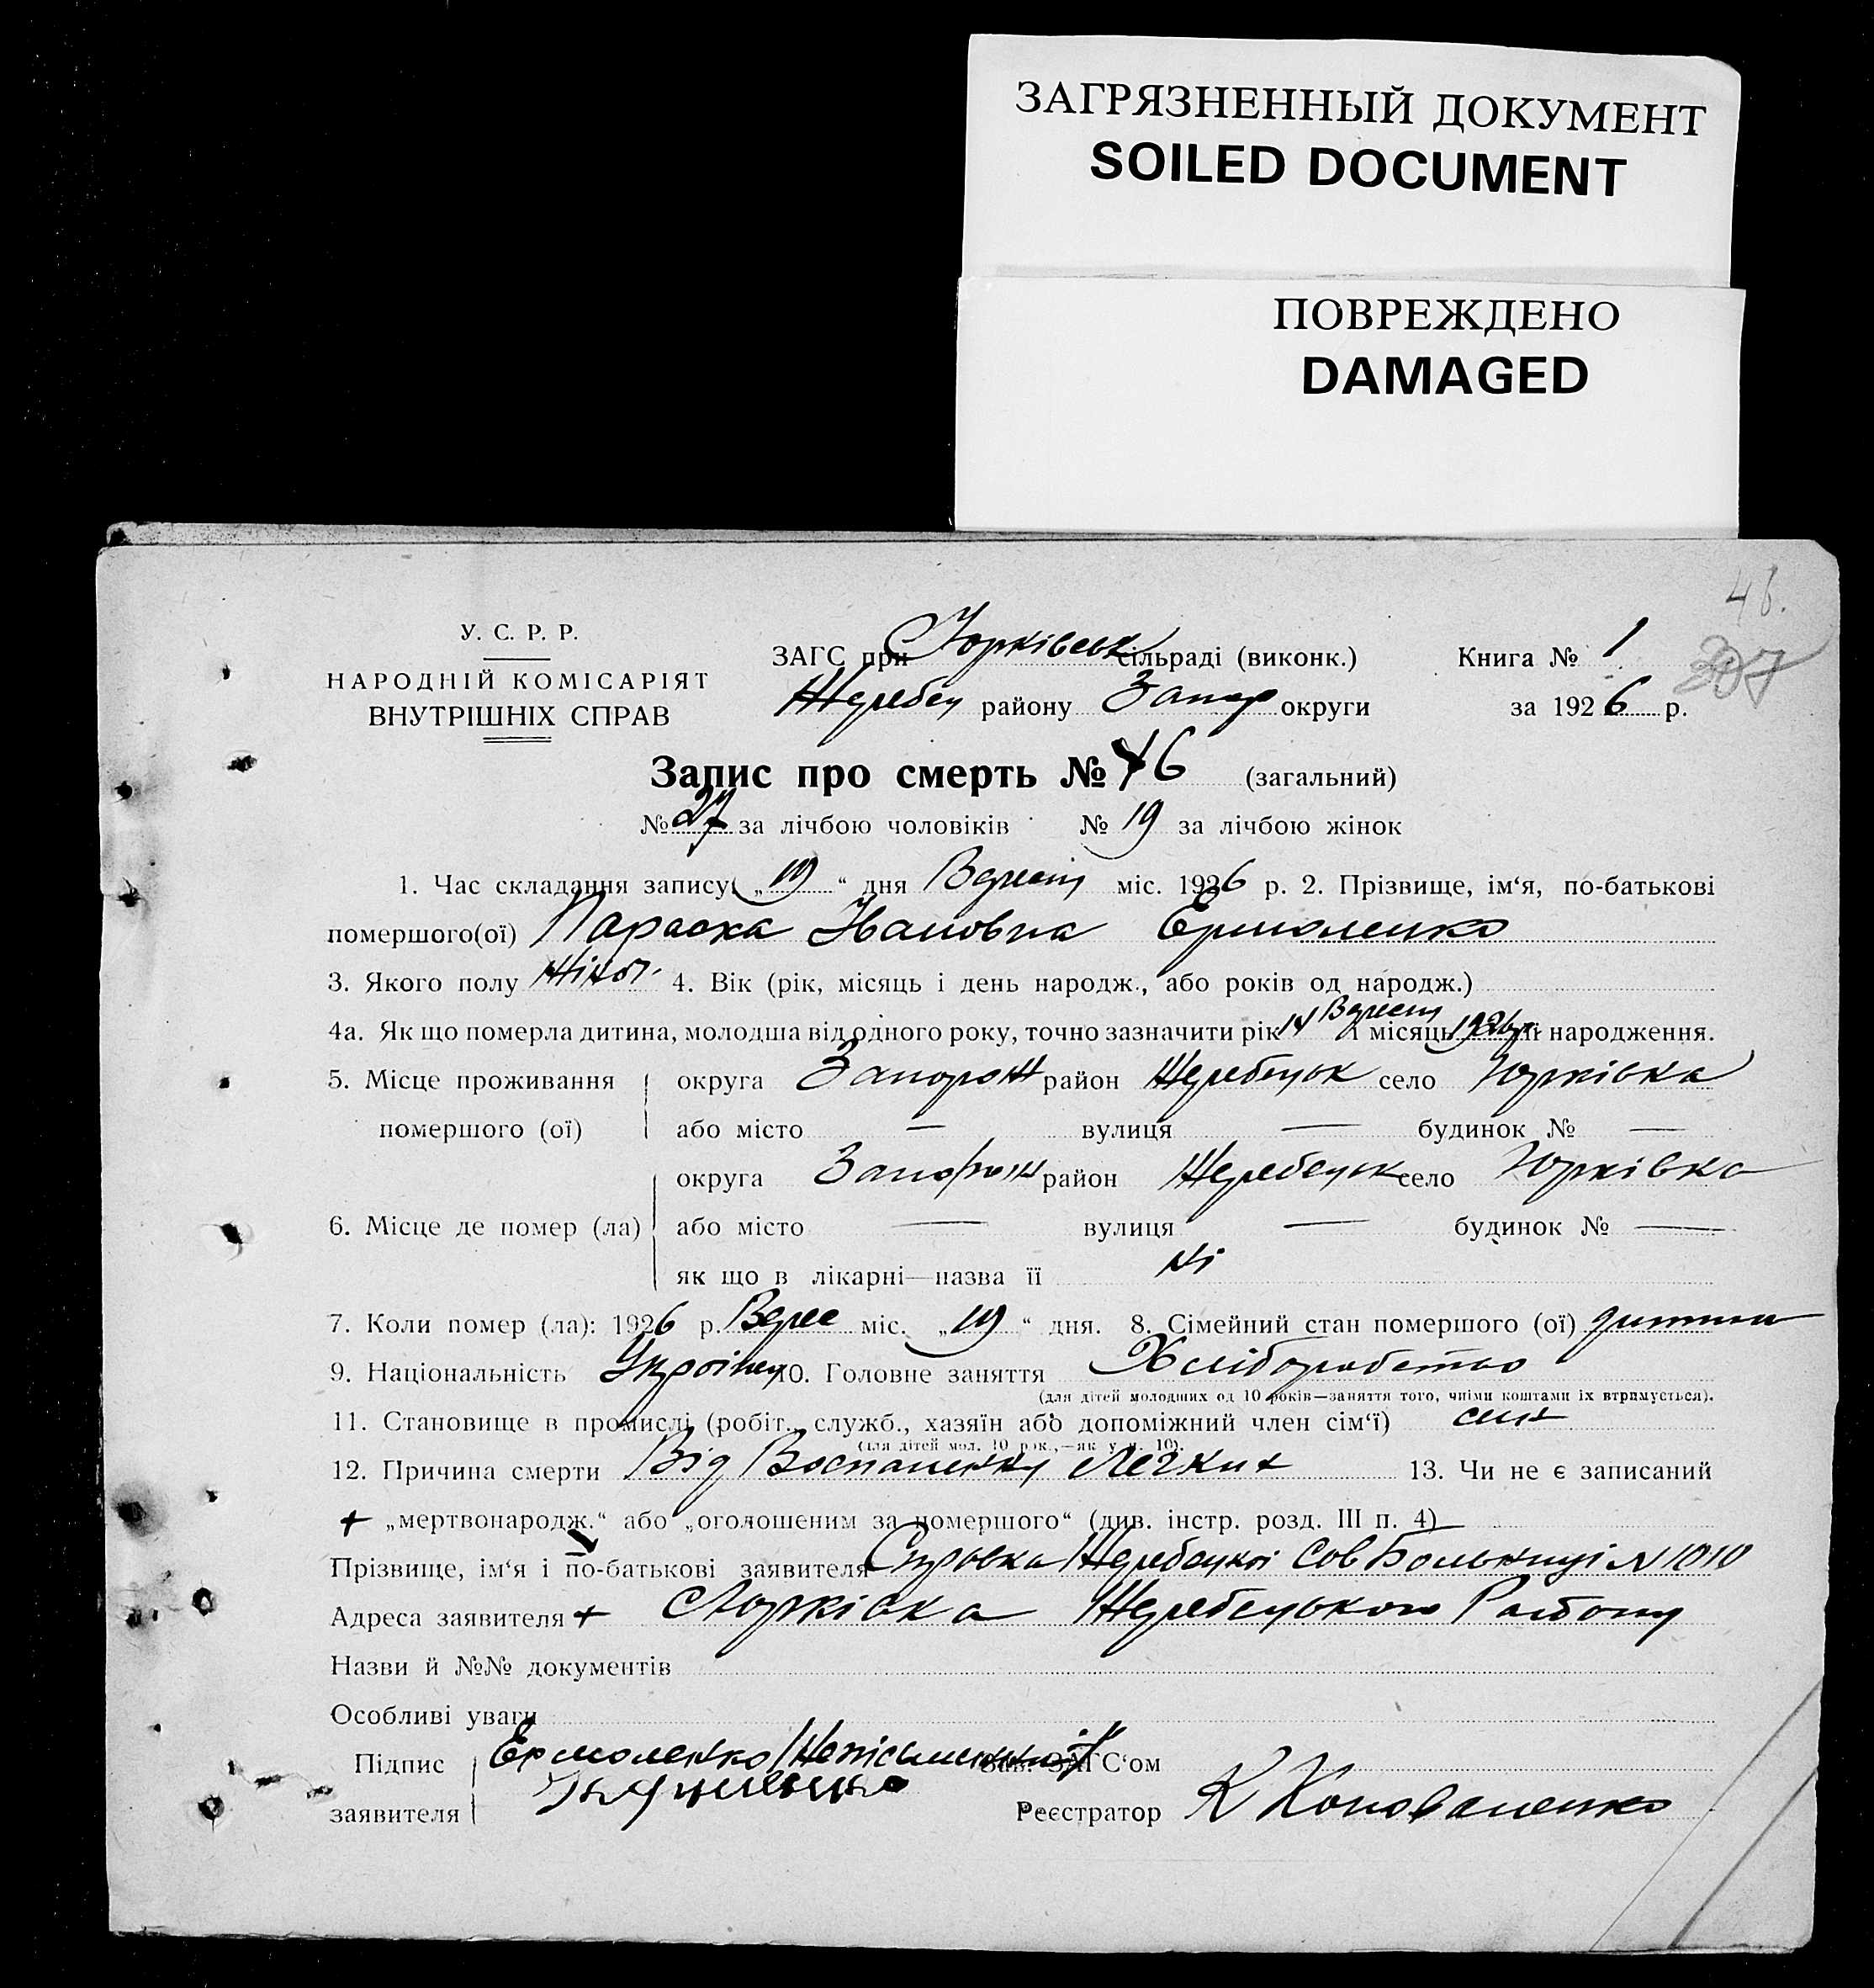 ЗАГРЯЗНЕННЫЙ ДОКУМЕНТ
SOILED DOCUMENT
ПОВРЕЖДЕНО
DAMAGED
46.
307
У. С. Р. Р.
НАРОДНІЙ КОМІСАРІЯТ
ВНУТРІШНІХ СПРАВ
ЗАГС при Юрківськ сільраді (виконк.) Книга № 1
Жеребец району Запор округи за 1926 р.
Запис про смерть № 46 (загальний)
№ 27 за лічбою чоловіків № 19 за лічбою жінок
1. Час складання запису „19“ дня Вересня міс. 1926 р. 2. Прізвище, ім‘я, по-батькові
помершого(ої) Параска Івановна Ермоленко
3. Якого полу Жіноч. 4. Вік (рік, місяць і день народж., або років од народж.)
4а. Як що померла дитина, молодша від одного року, точно зазначити рік 14 Вересня і місяць 1926 р. її народження.
5. Місце проживання округа Запорож район Жеребецьк село Юрківка
помершого (ої) або місто — вулиця — будинок № —
округа Запорож район Жеребецьк село Юрківка
6. Місце де помер (ла) або місто — вулиця — будинок № —
як що в лікарні—назва її Ні
7. Коли помер (ла): 1926 р. Верес міс. „19“ дня. 8. Сімейний стан помершого (ої) дитина
9. Національність Україн 10. Головне заняття Хліборобство
(для дітей молодших од 10 років—заняття того, чиїми коштами їх втримується).
11. Становище в промислі (робіт., служб., хазяїн або допоміжний член сім‘ї)
(для дітей мол. 10 рок.,—як у п. 10).
12. Причина смерти Від Воспаленія Легких 13. Чи не є записаний
+ „мертвонародж.“ або „оголошеним за помершого“ (див. інстр. розд. III п. 4)
Прізвище, ім‘я і по-батькові заявителя Справка Жеребецкої Сов Больниці N 1010
Адреса заявителя + с Юрківка Жеребецького Району
Назви й №№ документів
Особливі уваги
Підпис Ермоленко Неписьменний Зав. ЗАГС‘ом
заявителя Реєстратор К Коноваленко